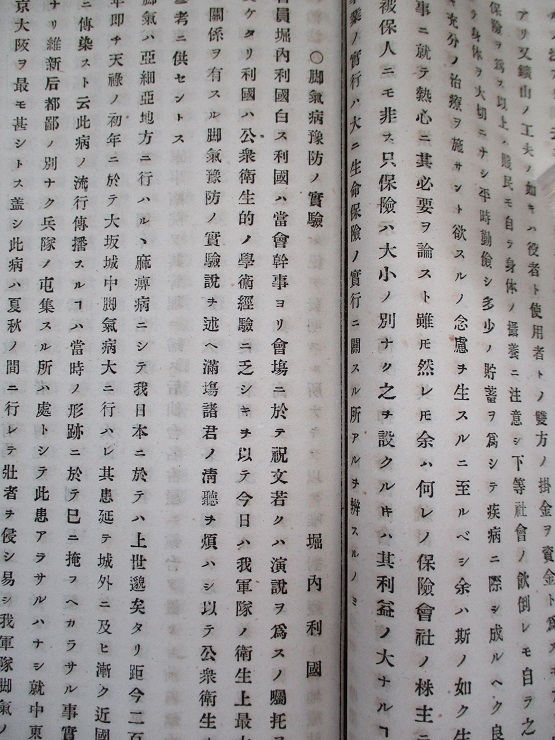 アリ又鑛山ノ工夫ノ如キハ役者ト使用者トノ雙方ノ掛金ヲ資金ト爲
保險ヲ爲ス以上ハ賤民モ自ラ身体ノ攝養ニ注意シ下等社會ノ飲倒レモ自ラ之
テ身体ヲ大切ニナシ平時勤儉シ多少ノ貯蓄ヲ爲シテ疾病ニ際シ成ルヘク良
キ充分ノ治療ヲ施サント欲スルノ念慮ヲ生スルニ至ルベシ余ハ斯ノ如ク生
事ニ就テ熱心ニ其必要ヲ論スト雖モ然レ𪜈余ハ何レノ保險會社ノ株主ニ
被保人ニモ非ス只保險ハ大小ノ別ナク之ヲ設クル𪜈ハ其利益ノ大ナルヿ
業ノ實行ハ大ニ生命保險ノ實行ニ關スル所アルヲ辨スルノミ
〇脚氣病豫防ノ實驗
堀內利國
會員堀內利國白ス利國ハ當會幹事ヨリ會塲ニ於テ祝文若クハ演說ヲ爲スノ囑托ヲ
ケタリ利國ハ公衆衛生的ノ學術經驗ニ乏シキヲ以テ今日ハ我軍隊ノ衛生上最
關係ヲ有スル脚氣豫防ノ實驗說ヲ述ヘ滿塲諸君ノ淸聽ヲ煩ハシ以テ公衆衛生
參考ニ供セントス
脚氣ハ亞細亞地方ニ行ハルヽ麻痺病ニシテ我日本ニ於テハ上世邈矣タリ距今二百
年即チ天祿ノ初年ニ於テ大坂城中脚氣病大ニ行ハレ其患延テ城外ニ及ヒ漸ク近國
ニ傳染スト云此病ノ流行傳播スルヿハ當時ノ形跡ニ於テ巳ニ掩フヘカラサル事實
ナリ維新后都鄙ノ別ナク兵隊ノ屯集スル所ハ處トシテ此患アラサルハナシ就中東
京大阪ヲ最モ甚シトス盖シ此病ハ夏秋ノ間ニ行レテ壯者ヲ侵シ易シ我軍隊脚氣ノ